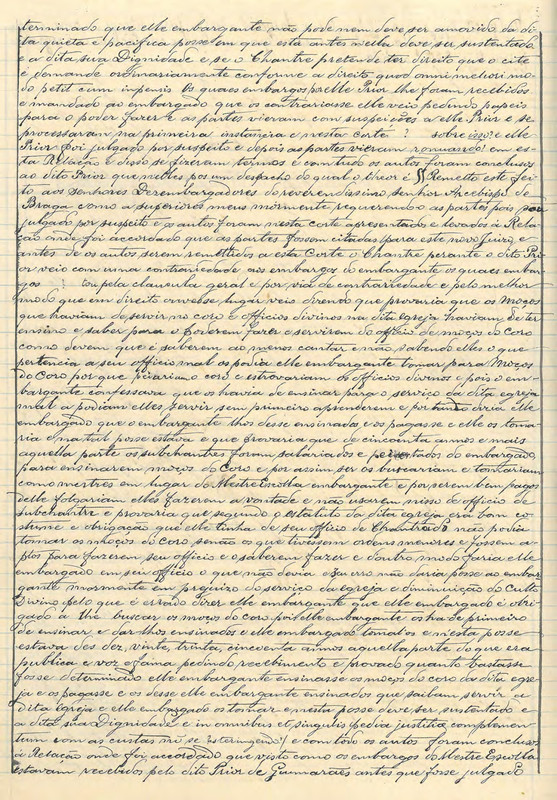 terminado que elle embargante não pode nem deve ser amovido da di-
ta quieta e pacifica posse em que está antes nella deve ser sustentado
e a dita sua Dignidade e se o Chantre pretende ter direito que o cite
e demande ordinariamente conforme a direito quod omni meliori mo-
do petit cum expensis Os quaes embargos por elle Prior lhe foram recebidos
e mandado ao embargado que os contrariasse elle veio pedindo papeis
para o poder fazer e as partes vieram com suspeições a elle Prior e se
processaram na primeira instancia e nesta corte ? sobre isso e elle
Prior foi julgado por suspeito e depois as partes vieram em es-
ta Relação e disso se fizeram termos e com tudo os autos foram conclusos
ao dito Prior que nelles pos um despacho do qual o theor é § Remetto este fei-
to aos senhores Dezembargadores do reverendissimo senhor Arcebispo de
Braga como a superiores meus mormente requerendo as partes pois sou
julgado por suspeito e os autos foram nesta corte apresentado e levados á Rela-
ção onde foi accordado que as partes fossem citadas para este novo Juizo e
antes de os autos serem remettidos a esta Corte o Chantre perante o dito Pri-
or veio com uma contrariedade aos embargos do embargante os quaes embar-
gos ? ou pela clausula geral e por via de contrariedade e pelo melhor
modo que em direito ouvesse lugar veis dizendo que provaria que os Moços
que haviam de servir no coro e officios divinos na dita egreja haviam de ter
ensino e saber para o poderem fazer e servirem do officio de moços do coro
como devem que é saberem ao menos cantar e não sabendo elles o que
pertencia a seu officio mal os podia elle embargante tomar para Moços
do Coro por que pejariam o coro e estrovariam os officios divinos e pois o em-
bargante confessava que os havia de ensinar para o serviço da dita egreja
mal os podiam elles servir sem primeiro aprenderem e portanto devia elle
embargado que o embargante lhos desse ensinados e os pagasse e elle os toma-
ria e na tal posse estava e que provaria que de cincoenta annos e mais
aquella parte os subchantres foram salariados e peitados do embargado
para ensinarem moços do Coro e por assim ser os buscariam e tomariam
como mestres em lugar do Mestre Escolla embargante e por serem bem pagos
delle folgariam elles fazerem a vontade e não usarem nisso do officio de
subchantre e provaria que segundo o estatuto da dita egreja era bom cos-
tume e obrigação que elle tinha de seu officio de Chantrado não podia
tomar os moços do coro senão os que tivessem ordens menores e fossem a-
ptos para fazerem seu officio e o saberem fazer e doutro modo faria elle
embargado em seu officio o que não devia e seu erro não daria posse ao embar-
gante mormente em prejuizo do serviço da egreja e diminuição do Culto
Divino pelo que é errado dizer elle embargante que elle embargado é obri-
gado a lhe buscar os moços do coro pois elle embargante os ha de primeiro
de ensinar e dar-lhos ensinados e elle embargado tomal-os e nesta posse
estava des dez, vinte, trinta, cincoenta annos aquella parte do que era
publica e voz e fama pedindo recebimento e provado quanto bastasse
fosse determinado elle embargante ensinasse os moços do coro da dita egre-
ja e os pagasse e os desse elle embargante ensinados que saibam servir a
dita egreja e elle embargado os tomar e nesta posse deve ser sustentado e
a dita sua Dignidade e in omnibus et singulis pedia justitia complemen-
tum com as custas e com todo os autos foram conclusos
á Relação onde foi accordado que visto como os embargos do Mestre Escolla
estavam recebidos pelo dito Prior de Guimarães antes que fosse julgado